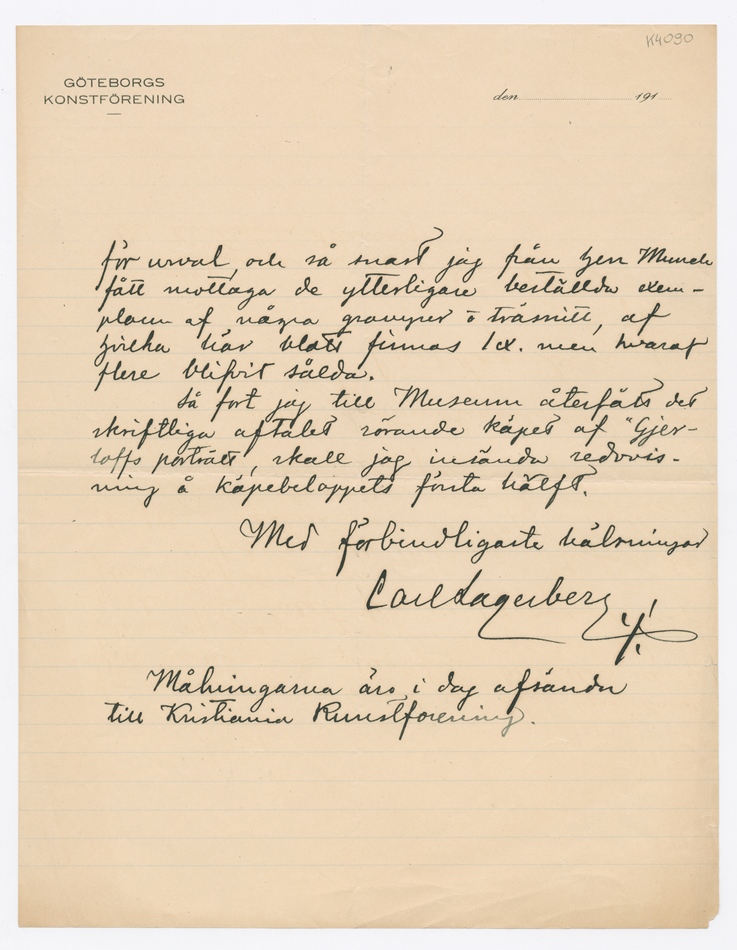 K4090
GÖTEBORGS
KONSTFÖRENING
den 191
för urval, och så snart jag från herr Munch
fått mottaga de ytterligare beställda exem-
plaren af några gravyrer o träsnitt, af
hvilka här blott finnas 1 ex. men hvaraf
flere blifvit sålda.
Så fort jag till Museum återfåtts det
skriftliga aftalet rörande köpet af "Gjer-
löffs porträtt, skall jag insända redovis-
ning å köpebeloppets första hälft.
Med förbindligaste hälsningar
Carl Lagerberg
Målningarna äro i dag afsända
till Kristiania Kunstforening.